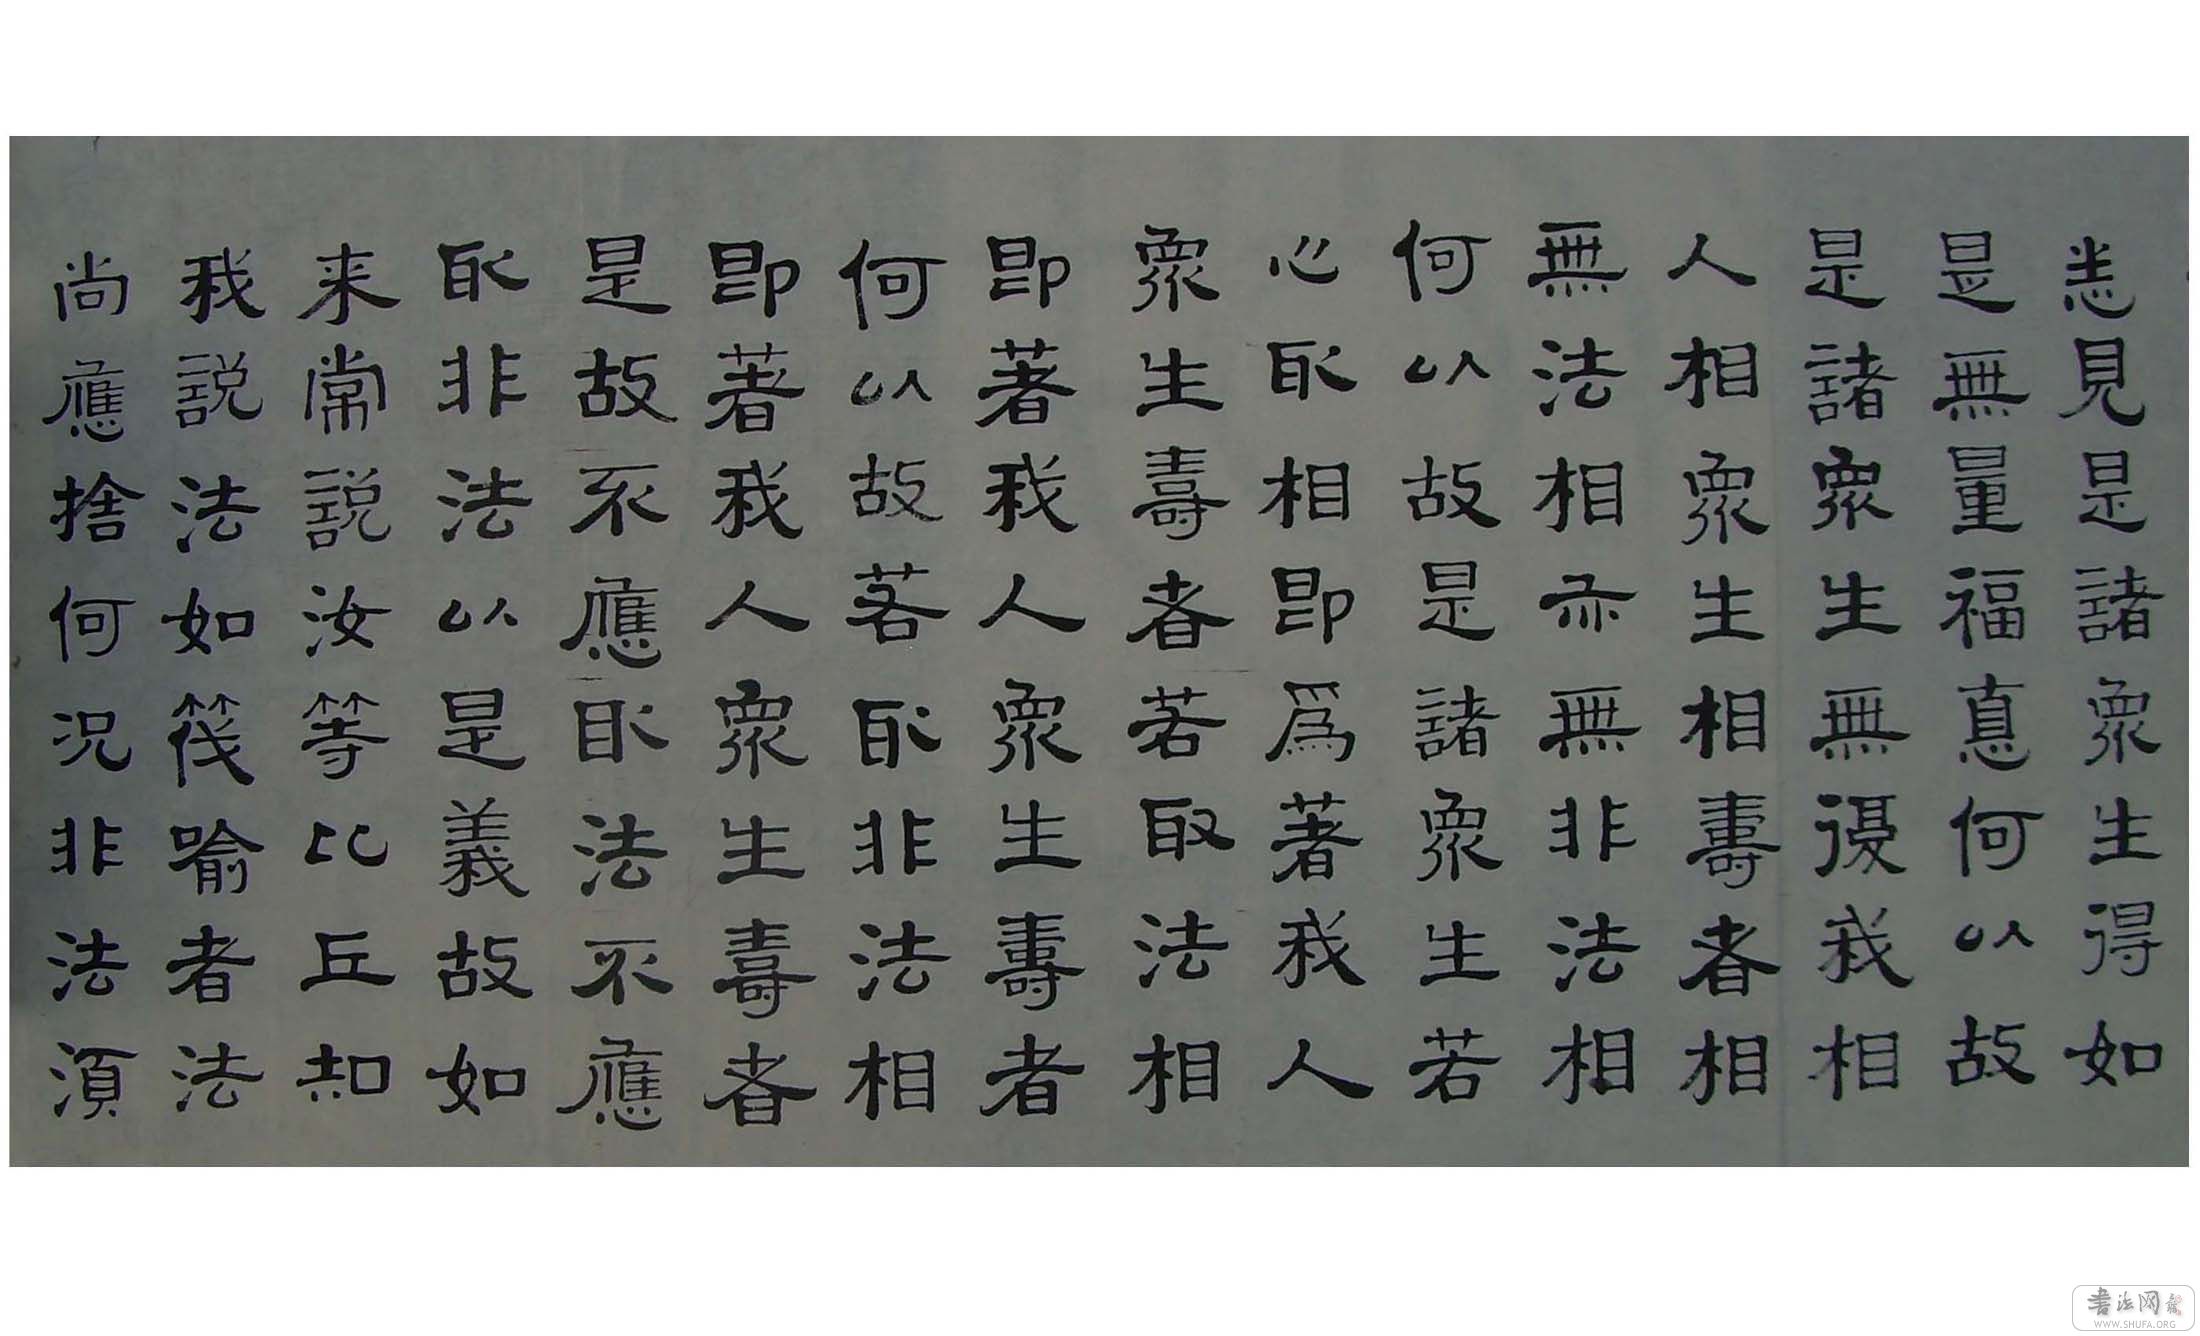 悉見是諸衆生得如
是無量福悳何以故
是諸衆生無復我相
人相衆生相壽者相
無法相亦無非法相
何以故是諸衆生若
心取相即爲著我人
衆生壽者若取法相
即著我人衆生壽者
何以故若取非法相
即著我人衆生壽者
是故不應取法不應
取非法以是義故如
来常説汝等比丘知
我説法如筏喻者法
尚應捨何況非法湏
書法网
WWW.SHUFA.ORG